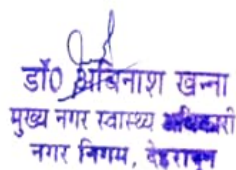 डॉ0 अबिनाश खन्ना
मुख्य नगर स्वास्थ्य अधिकारी
नगर निगम, देहरादून